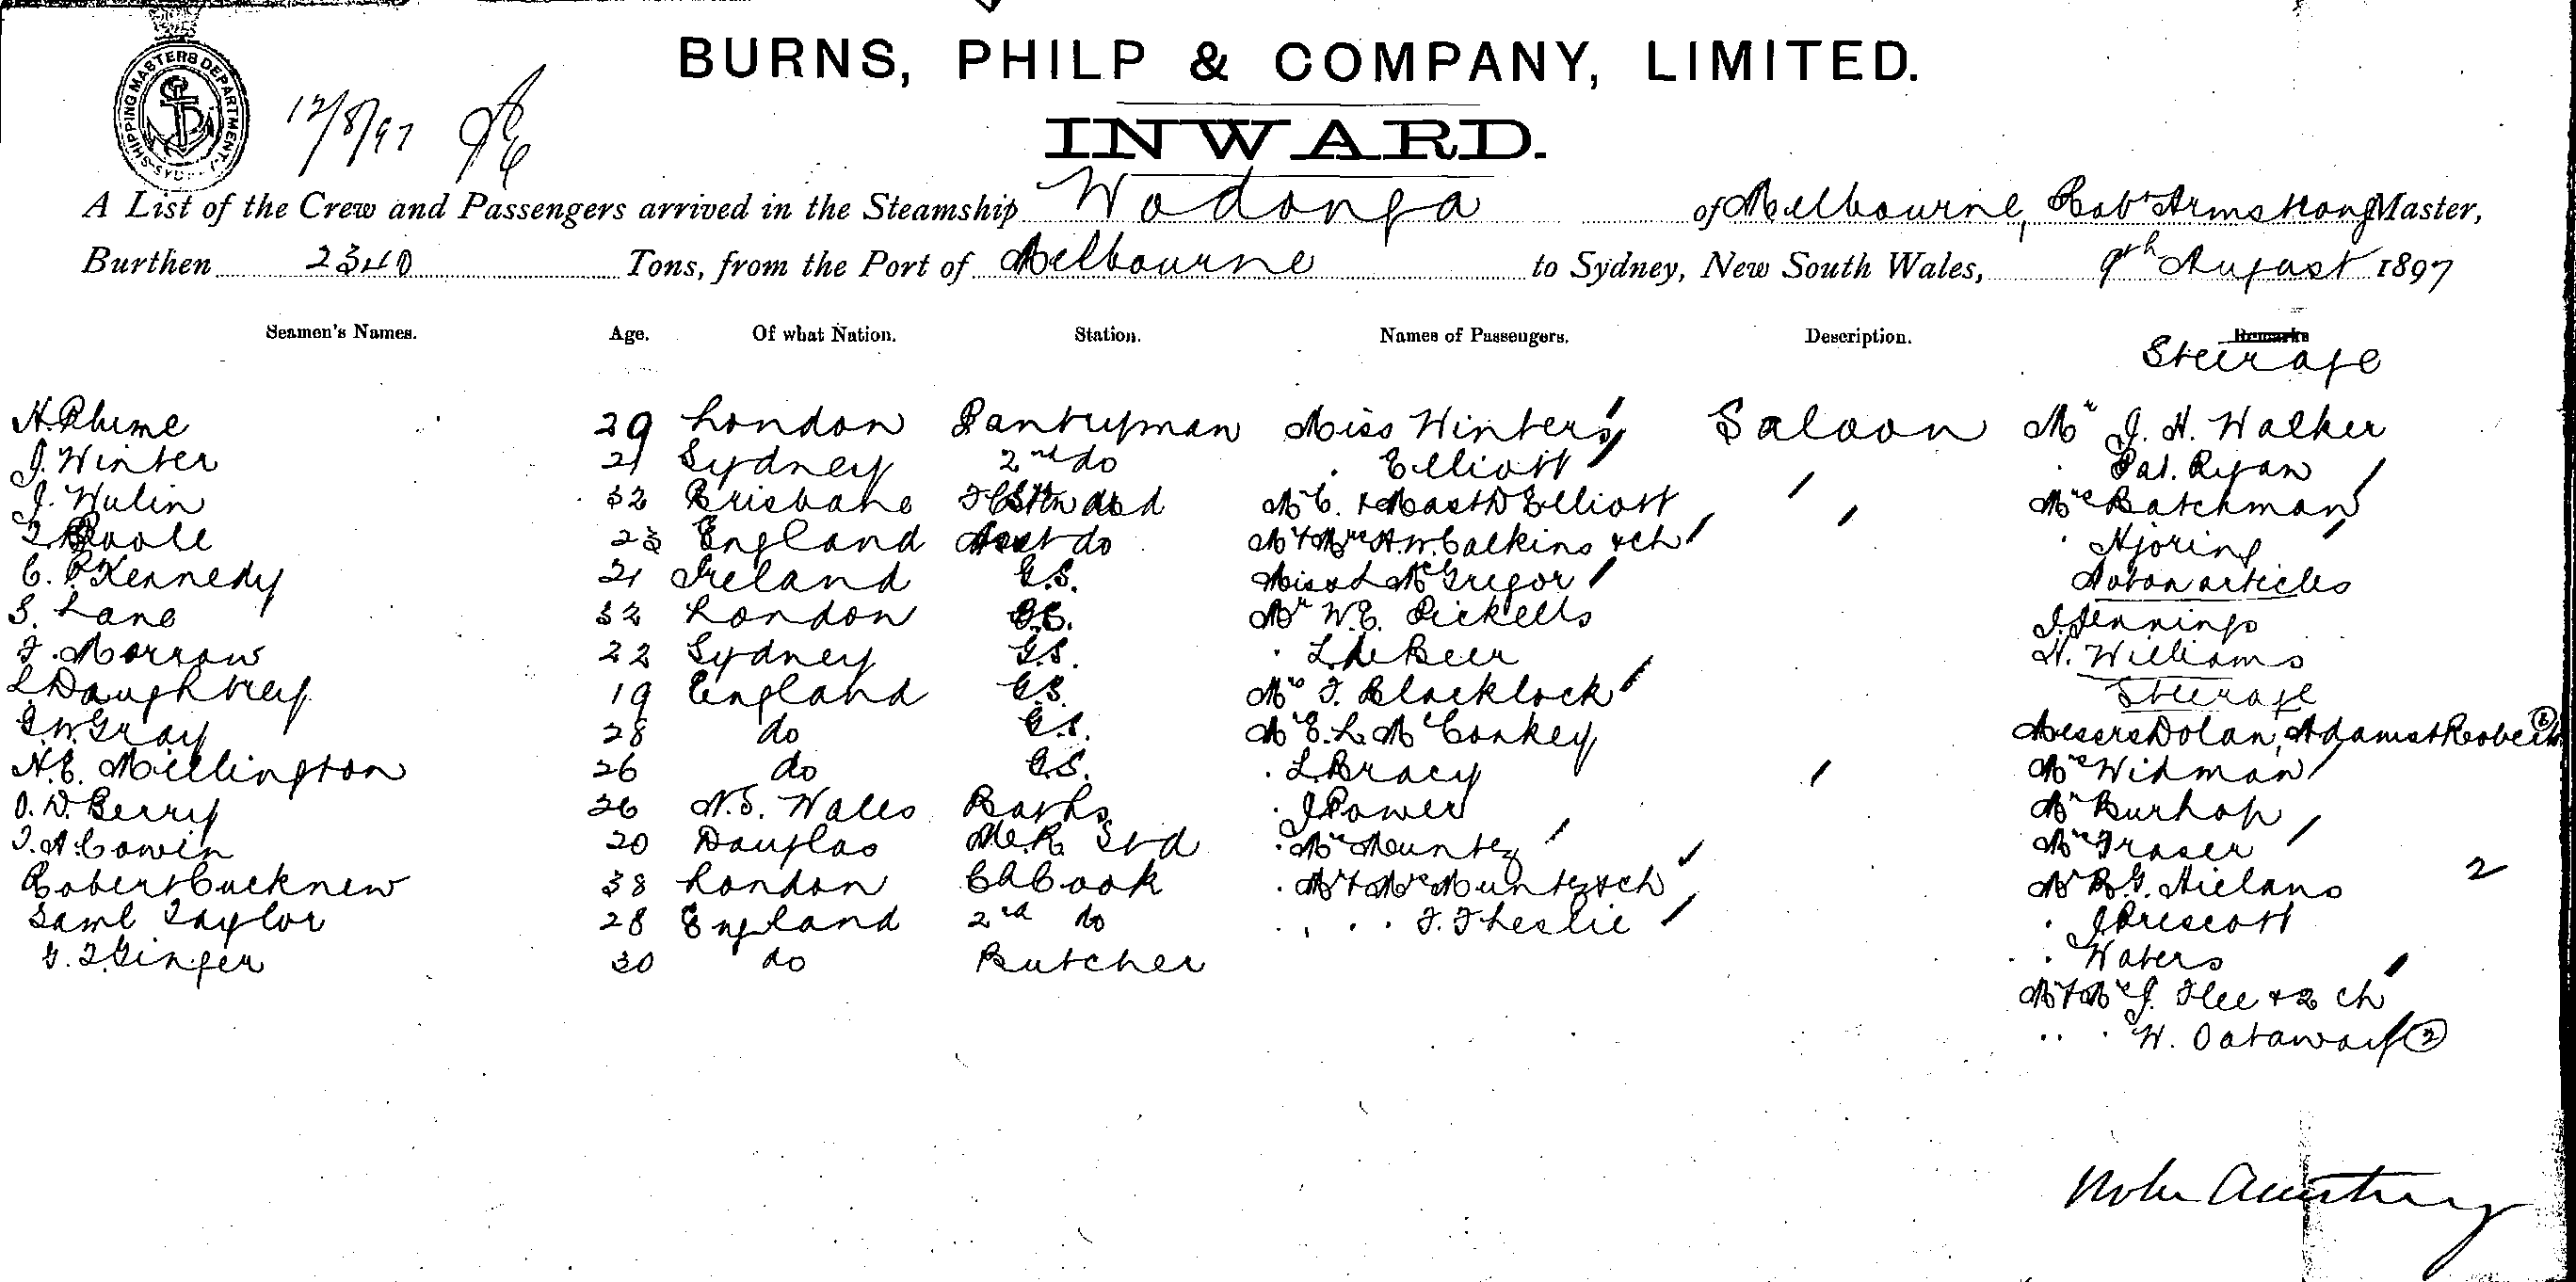 SHIPPING MASTERS DEPARTMENT
12/8/97
BURNS, PHILP & COMPANY, LIMITED.
INWARD.
A List of the Crew and Passengers arrived in the Steamship Wodonga of Melbourne, Robt Armstrong Master,
Burthen 2340 Tons, from the Port of Melbourne to Sydney, New South Wales, 9th August 1897
Seamen's Names. Age. Of what Nation. Station. Names of Passengers. Description. Remarks
Steerage
H. Plume 29 London Pantryman Miss Winters Saloon Mr J. H. Walker
J. Winter 21 Sydney 2nd do . Elliott . Pat. Ryan
J. Wulin 32 Brisbane Mr C. & Mast D Elliott Mrs Batchman
T. Poole 23 England Asst do Mr & Mrs A. W. Calkins & ch . Hjoring
C. P. Kennedy 21 Ireland G.S. Miss L McGregor Not on articles
S. Lane 32 London G.S. Mr W. E. Pickells J. Jennings
F. Morrow 22 Sydney G.S. . L. de Beer H. Williams
L Daughtrey 19 England G.S. Mrs F. Blacklock Steerage
G. W. Gray 28 do G.S. Mr E. L. McConkey Messrs Dolan, Adams & Roberts
H. E. Millington 26 do G.S. . L Bracy Mrs Widman
O. D. Berry 26 N. S. Wales Baths . J Power Mr Burhop
T. A. Cowin 20 Douglas M.R. Std . Mrs Muntz Mrs Fraser
Robert Cucknew 38 London Ch Cook . Mr & Mrs Muntz & ch Mr R. G. Hielans 2
Saml Taylor 28 England 2nd do . . . . F. F. Leslie . J Prescott
G. T. Ginger 30 do Butcher . . Waters
Mr & Mrs J. Flee & 2 ch
. . . W. Oataway 2